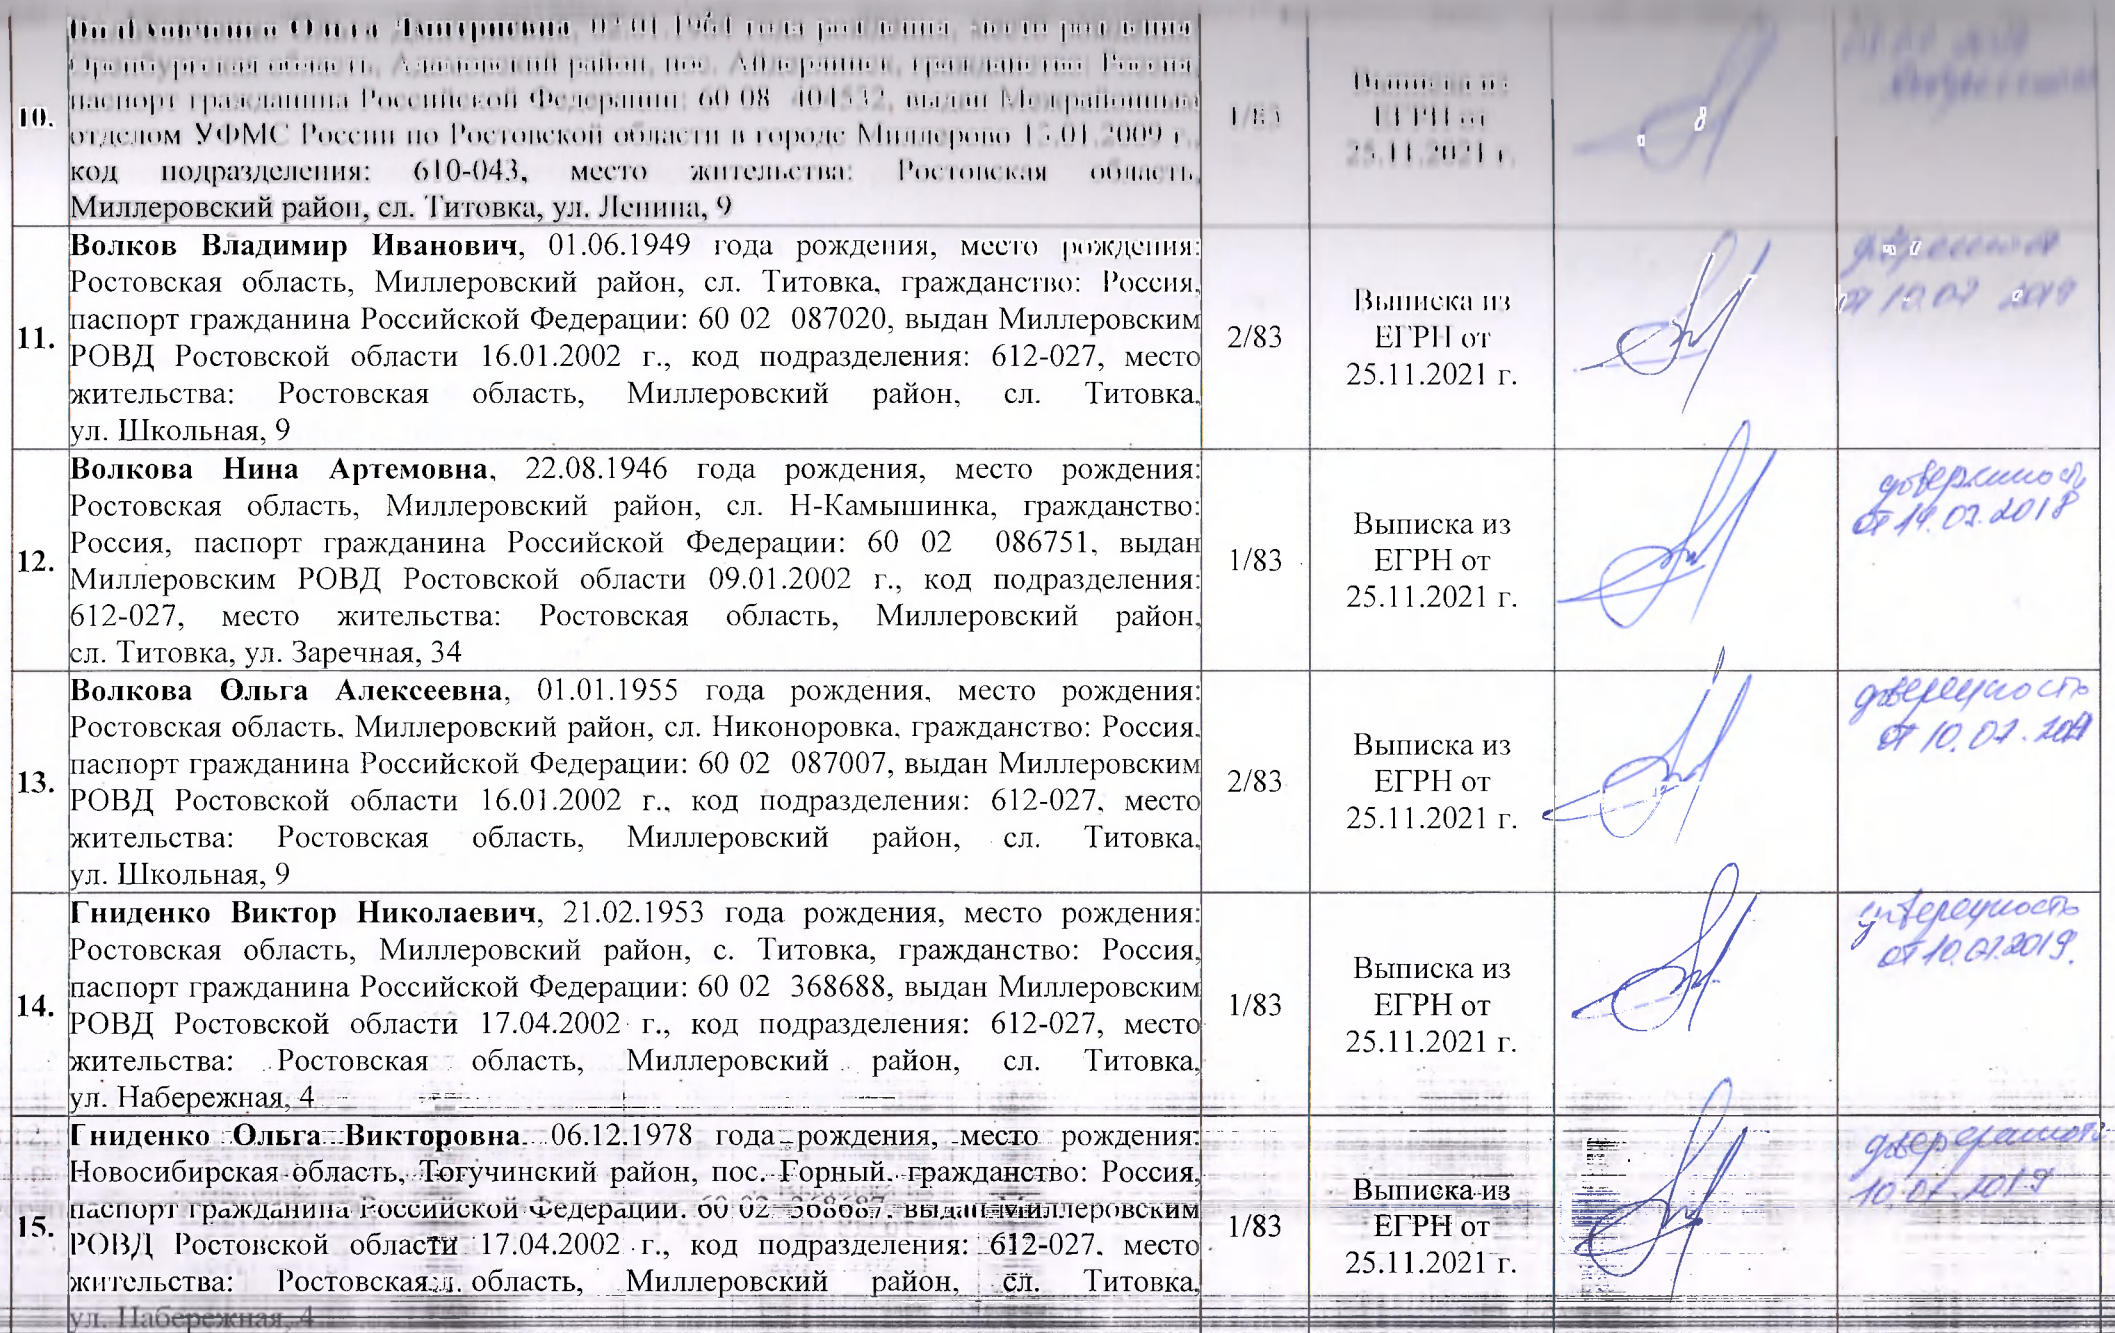 10.
Ольга Дмитриевна, 02.01.1961 года рождения, место рождения
Оренбургская область, Адамовский район, пос. Айдырлинск, гражданство: Россия,
паспорт гражданина Российской Федерации: 60 08 404532, выдан Межрайонным
отделом УФМС России по Ростовской области в городе Миллерово 13.01.2009 г.,
код подразделения: 610-043, место жительства: Ростовская область,
Миллеровский район, сл. Титовка, ул. Ленина, 9
1/83
Выписка из
ЕГРН от
25.11.2021 г.
11.
Волков Владимир Иванович, 01.06.1949 года рождения, место рождения:
Ростовская область, Миллеровский район, сл. Титовка, гражданство: Россия,
паспорт гражданина Российской Федерации: 60 02 087020, выдан Миллеровским
РОВД Ростовской области 16.01.2002 г., код подразделения: 612-027, место
жительства: Ростовская область, Миллеровский район, сл. Титовка,
ул. Школьная, 9
2/83
Выписка из
ЕГРН от
25.11.2021 г.
доверенность
от 10.07 2019
12.
Волкова Нина Артемовна, 22.08.1946 года рождения, место рождения:
Ростовская область, Миллеровский район, сл. Н-Камышинка, гражданство:
Россия, паспорт гражданина Российской Федерации: 60 02 086751, выдан
Миллеровским РОВД Ростовской области 09.01.2002 г., код подразделения:
612-027, место жительства: Ростовская область, Миллеровский район,
сл. Титовка, ул. Заречная, 34
1/83
Выписка из
ЕГРН от
25.11.2021 г.
доверенность
от
13.
Волкова Ольга Алексеевна, 01.01.1955 года рождения, место рождения:
Ростовская область, Миллеровский район, сл. Никоноровка, гражданство: Россия,
паспорт гражданина Российской Федерации: 60 02 087007, выдан Миллеровским
РОВД Ростовской области 16.01.2002 г., код подразделения: 612-027, место
жительства: Ростовская область, Миллеровский район, сл. Титовка,
ул. Школьная, 9
2/83
Выписка из
ЕГРН от
25.11.2021 г.
доверенность
от
14.
Гниденко Виктор Николаевич, 21.02.1953 года рождения, место рождения:
Ростовская область, Миллеровский район, с. Титовка, гражданство: Россия,
паспорт гражданина Российской Федерации: 60 02 368688, выдан Миллеровским
РОВД Ростовской области 17.04.2002 г., код подразделения: 612-027, место
жительства: Ростовская область, Миллеровский район, сл. Титовка,
ул. Набережная, 4
1/83
Выписка из
ЕГРН от
25.11.2021 г.
доверенность
от 10.07.2019.
15.
Гниденко Ольга Викторовна, 06.12.1978 года рождения, место рождения:
Новосибирская область, Тогучинский район, пос. Горный, гражданство: Россия,
паспорт гражданина Российской Федерации: 60 02 368687, выдан Миллеровским
РОВД Ростовской области 17.04.2002 г., код подразделения: 612-027, место
жительства: Ростовская область, Миллеровский район, сл. Титовка,
ул. Набережная, 4
1/83
Выписка из
ЕГРН от
25.11.2021 г.
доверенность
10.07.2019